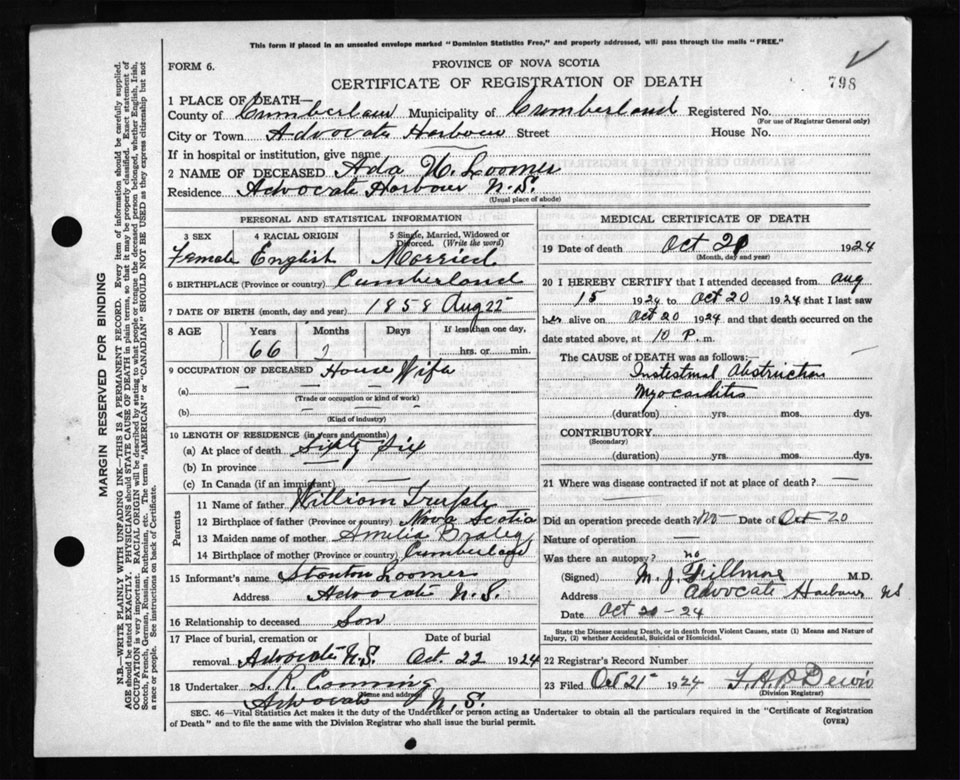 This form if placed in an unsealed envelope marked "Dominion Statistics Free," and properly addressed, will pass through the mails "FREE."
FORM 6.
PROVINCE OF NOVA SCOTIA
CERTIFICATE OF REGISTRATION OF DEATH
798
1 PLACE OF DEATH—
County of Cumberland Municipality of Cumberland Registered No.
(For use of Registrar General only)
City or Town Advocate Harbour Street House No.
If in hospital or institution, give name
2 NAME OF DECEASED Ada W. Loomer
Residence Advocate Harbour N.S.
(Usual place of abode)
PERSONAL AND STATISTICAL INFORMATION
3 SEX 4 RACIAL ORIGIN 5 Single, Married, Widowed or Divorced. (Write the word)
Female English Married
6 BIRTHPLACE (Province or country) Cumberland
7 DATE OF BIRTH (month, day and year) 1858 Aug 22
8 AGE Years Months Days If less than one day,
66 2 hrs. or min.
9 OCCUPATION OF DECEASED House Wife
(a)
(Trade or occupation or kind of work)
(b)
(Kind of industry)
10 LENGTH OF RESIDENCE (in years and months)
(a) At place of death Sixty Six
(b) In province
(c) In Canada (if an immigrant)
Parents
11 Name of father William
12 Birthplace of father (Province or country) Nova Scotia
13 Maiden name of mother Amelia
14 Birthplace of mother (Province or country) Cumberland
15 Informant's name Stanton Loomer
Address Advocate N.S.
16 Relationship to deceased Son
17 Place of burial, cremation or Date of burial
removal Advocate N.S. Oct. 22 1924
18 Undertaker S. R. Canning
(Name and address)
Advocate N.S.
MEDICAL CERTIFICATE OF DEATH
19 Date of death Oct 20 1924
(Month, day and year)
20 I HEREBY CERTIFY that I attended deceased from Aug
15 1924 to Oct 20 1924 that I last saw
her alive on Oct 20 1924 and that death occurred on the
date stated above, at 10 P. m.
The CAUSE OF DEATH was as follows:—
Instestinal Abstruction
Myocarditis
(duration) yrs. mos. dys.
CONTRIBUTORY
(Secondary)
(duration) yrs. mos. dys.
21 Where was disease contracted if not at place of death?
Did an operation precede death? No Date of Oct 20
Nature of operation
Was there an autopsy? no
(Signed) M. J. Fillmore M.D.
Address Advocate Harbour NS
Date Oct 20-24
State the Disease causing Death, or in death from Violent Causes, state (1) Means and Nature of
Injury, (2) whether Accidental, Suicidal or Homicidal.
22 Registrar's Record Number
23 Filed Oct 21st 1924
(Division Registrar)
SEC. 46—Vital Statistics Act makes it the duty of the Undertaker or person acting as Undertaker to obtain all the particulars required in the "Certificate of Registration
of Death" and to file the same with the Division Registrar who shall issue the burial permit.
(OVER)
MARGIN RESERVED FOR BINDING
N.B.—WRITE PLAINLY WITH UNFADING INK—THIS IS A PERMANENT RECORD. Every item of information should be carefully supplied.
AGE should be stated EXACTLY. PHYSICIANS should STATE CAUSE OF DEATH in plain terms, so that it may be properly classified. Exact statement of
OCCUPATION is very important. RACIAL ORIGIN will be described by stating to what people or tongue the deceased person belonged, whether English, Irish,
Scotch, French, German, Russian, Ruthenian, etc. The terms "AMERICAN" or "CANADIAN" SHOULD NOT BE USED as they express citizenship but not
a race or people. See instructions on back of Certificate.